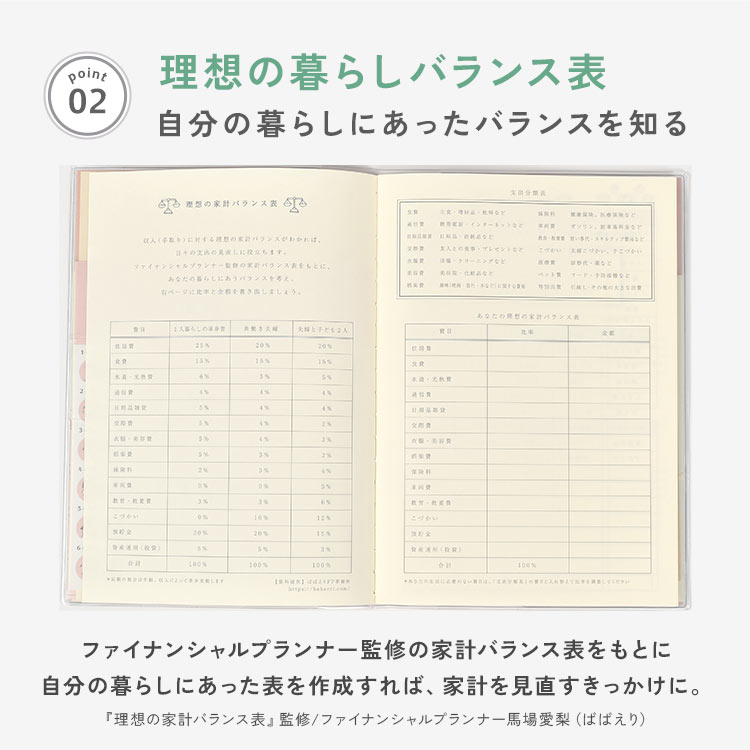 point
02
理想の暮らしバランス表
自分の暮らしにあったバランスを知る
理想の家計バランス表
収入(手取り)に対する理想の家計バランスがわかれば、
日々の支出の見直しに役立ちます。
ファイナンシャルプランナー監修の家計バランス表をもとに、
あなたの暮らしにあうバランスを考え、
右ページに比率と金額を書き出しましょう。
費目 1人暮らしの単身者 共働き夫婦 夫婦と子ども2人
住居費 25% 20% 20%
食費 15% 15% 15%
水道・光熱費 6% 5% 5%
通信費 4% 4% 4%
日用品雑貨 5% 4% 4%
交際費 5% 4% 2%
衣服・美容費 5% 4% 3%
娯楽費 5% 4% 2%
保険料 2% 3% 4%
車両費 0% 3% 5%
教育・教養費 3% 3% 6%
こづかい 0% 12%
預貯金 20% 20% 15%
資産運用(投資) 5% 5% 3%
合計 100% 100% 100%
支出分類表
食費 主食・嗜好品・飲料など
通信費 携帯電話・インターネットなど
日用品雑貨 日用品・消耗品など
交際費 友人との食事・プレゼントなど
衣服費 洋服・クリーニングなど
美容費 美容院・化粧品など
娯楽費
保険料 健康保険、医療保険など
車両費 ガソリン、自動車税など
教育・教養費 習い事代・スキルアップ費用など
こづかい 夫婦こづかい、子こづかい
医療費 診察代・薬など
ペット費 フード・予防接種など
特別出費 引越し・その他の大きな出費
あなたの理想の家計バランス表
費目 比率 金額
住居費
食費
水道・光熱費
通信費
日用品雑貨
交際費
衣服・美容費
娯楽費
保険料
車両費
教育・教養費
こづかい
預貯金
資産運用(投資)
合計 100%
ファイナンシャルプランナー監修の家計バランス表をもとに
自分の暮らしにあった表を作成すれば、家計を見直すきっかけに。
『理想の家計バランス表』監修/ファイナンシャルプランナー馬場愛梨(ばばえり)